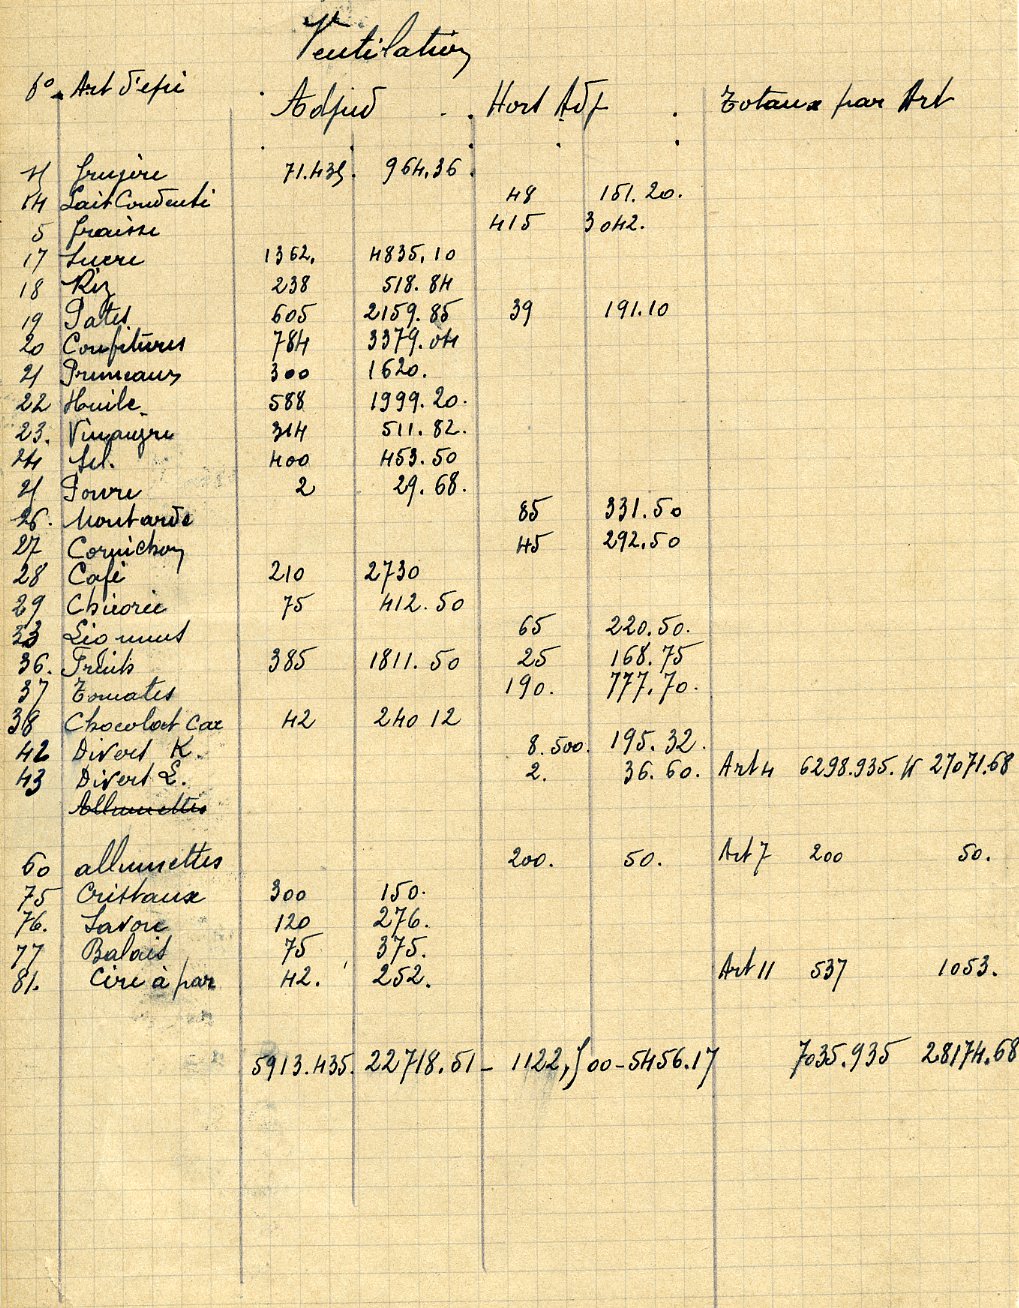 Ventilation
Art d'epi Adjud Hors Adj Totaux par Art
11 gruyère 71.435. 964.36
14 Lait Condensé 48 151.20.
5 graisse 415 3042.
17 Sucre 1362. 4835.10
18 Riz 238 518.84
19 Pates 605 2159.85 39 191.10
20 Confitures 784 3379.04
21 Pruneaux 300 1620.
22 Huile 588 1999.20.
23. Vinaigre 314 511.82.
24 Sel. 400 453.50
Poivre 2 29.68.
26. Moutarde 85 331.50
27 Cornichon 45 292.50
28 Café 210 2730
29 Chicorée 75 412.50
33 65 220.50.
36. Fruits 385 1811.50 25 168.75
37 Tomates 190. 777.70.
38 Chocolat Car 42 240 12
42 Divers K. 8.500. 195.32.
43 Divers L. 2. 36.60. Art 4 6298.935. K 27071.68
Allumettes
60 allumettes 200. 50. Art 7 200 50.
75 Cristaux 300 150.
76. Savon 120 276.
77 Balais 75 375.
81. Cire à par 42. 252. Art 11 537 1053.
5913.435. 22718.51 - 1122,500 - 5456.17 7035.935 28174.68